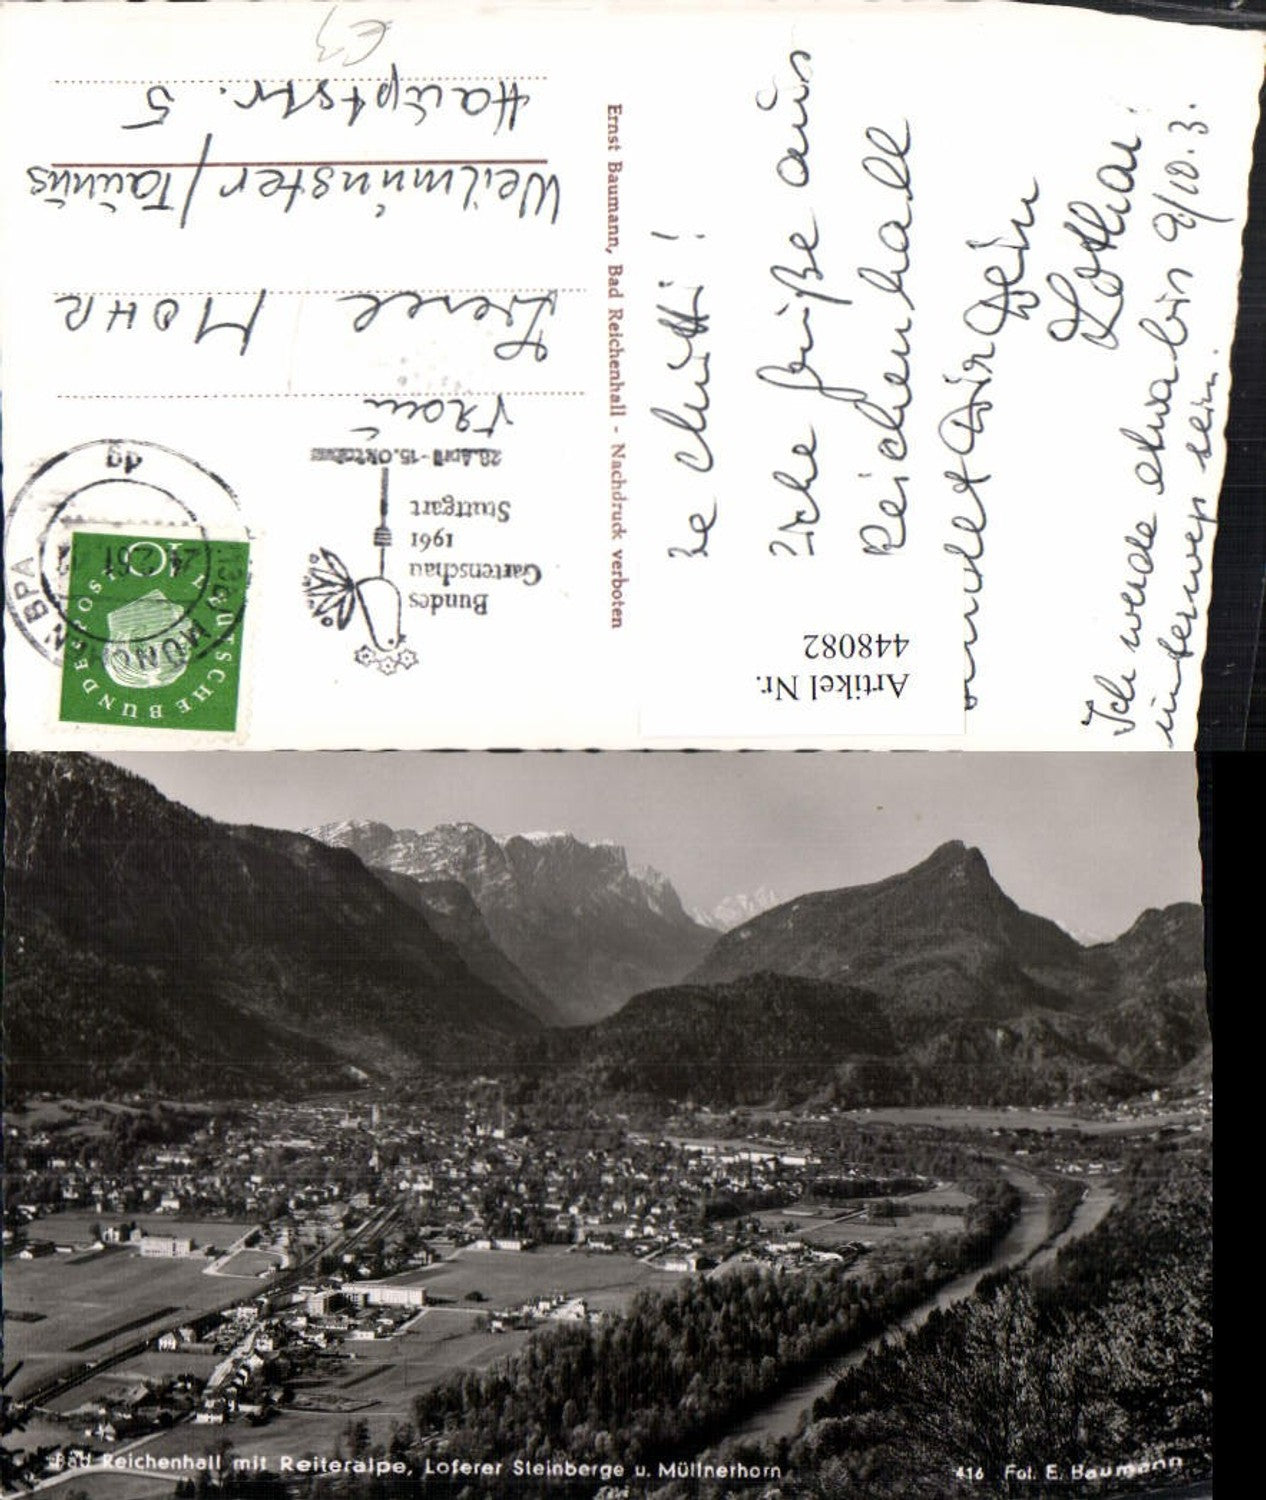 Ernst Baumann, Bad Reichenhall - Nachdruck verboten
Bundes
Gartenschau
1961
Stuttgart
28. April - 15. Oktober
DEUTSCHE BUNDESPOST
10
MÜNCHEN BPA
24.2.61
dg
Frau
Liesel MOHR
Weilmünster/Taunus
Hauptstr. 5
€3
Mutti!
Liebe Grüße aus
Reichenhall
sendet Dir Dein
Lothar!
Ich werde etwa bis 9/10.3.
unterwegs sein.
Artikel Nr.
448082
Bad Reichenhall mit Reiteralpe, Loferer Steinberge u. Müllnerhorn
416 Fot. E. Baumann